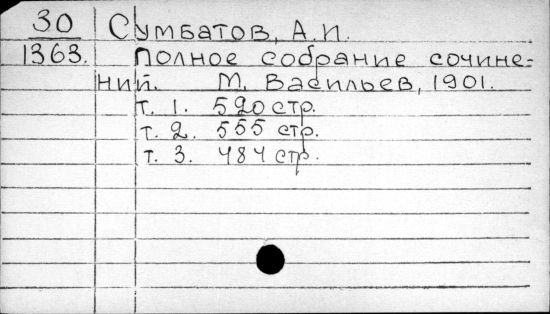 30 Сумбатов, А.И.
1363. Полное собрание сочине-
ний. М. Васильев, 1901.
т. 1. 520 стр.
т. 2. 555 стр.
т. 3. 484 стр.